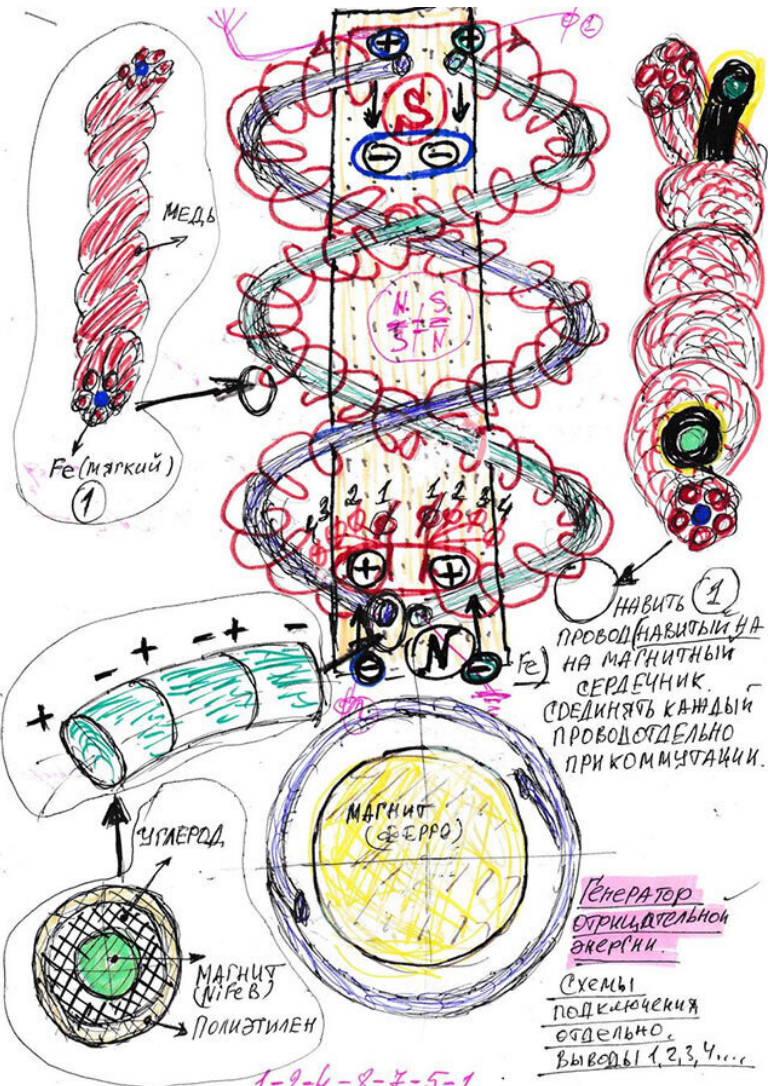 2
+ +
S
- -
МЕДЬ
N S
S N
Fe (мягкий)
1
4 3 2 1 1 2 3 4
+ +
N
- -
Fe)
НАВИТЬ 1
ПРОВОД (НАВИТЫЙ НА
НА МАГНИТНЫЙ
СЕРДЕЧНИК.
СОЕДИНЯТЬ КАЖДЫЙ
ПРОВОД ОТДЕЛЬНО
ПРИ КОММУТАЦИИ.
+ - + - + -
МАГНИТ
(ФЕРРО)
УГЛЕРОД
МАГНИТ
(NiFeB)
ПОЛИЭТИЛЕН
Генератор
отрицательной
энергии.
Схемы
подключения
отдельно.
Выводы 1,2,3,4....
1-2-4-8-7-5-1